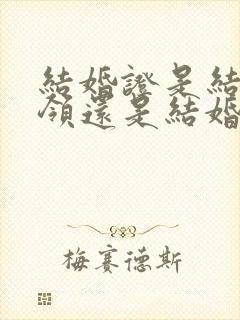 結婚證是結
領還是結婚
梅賽德斯